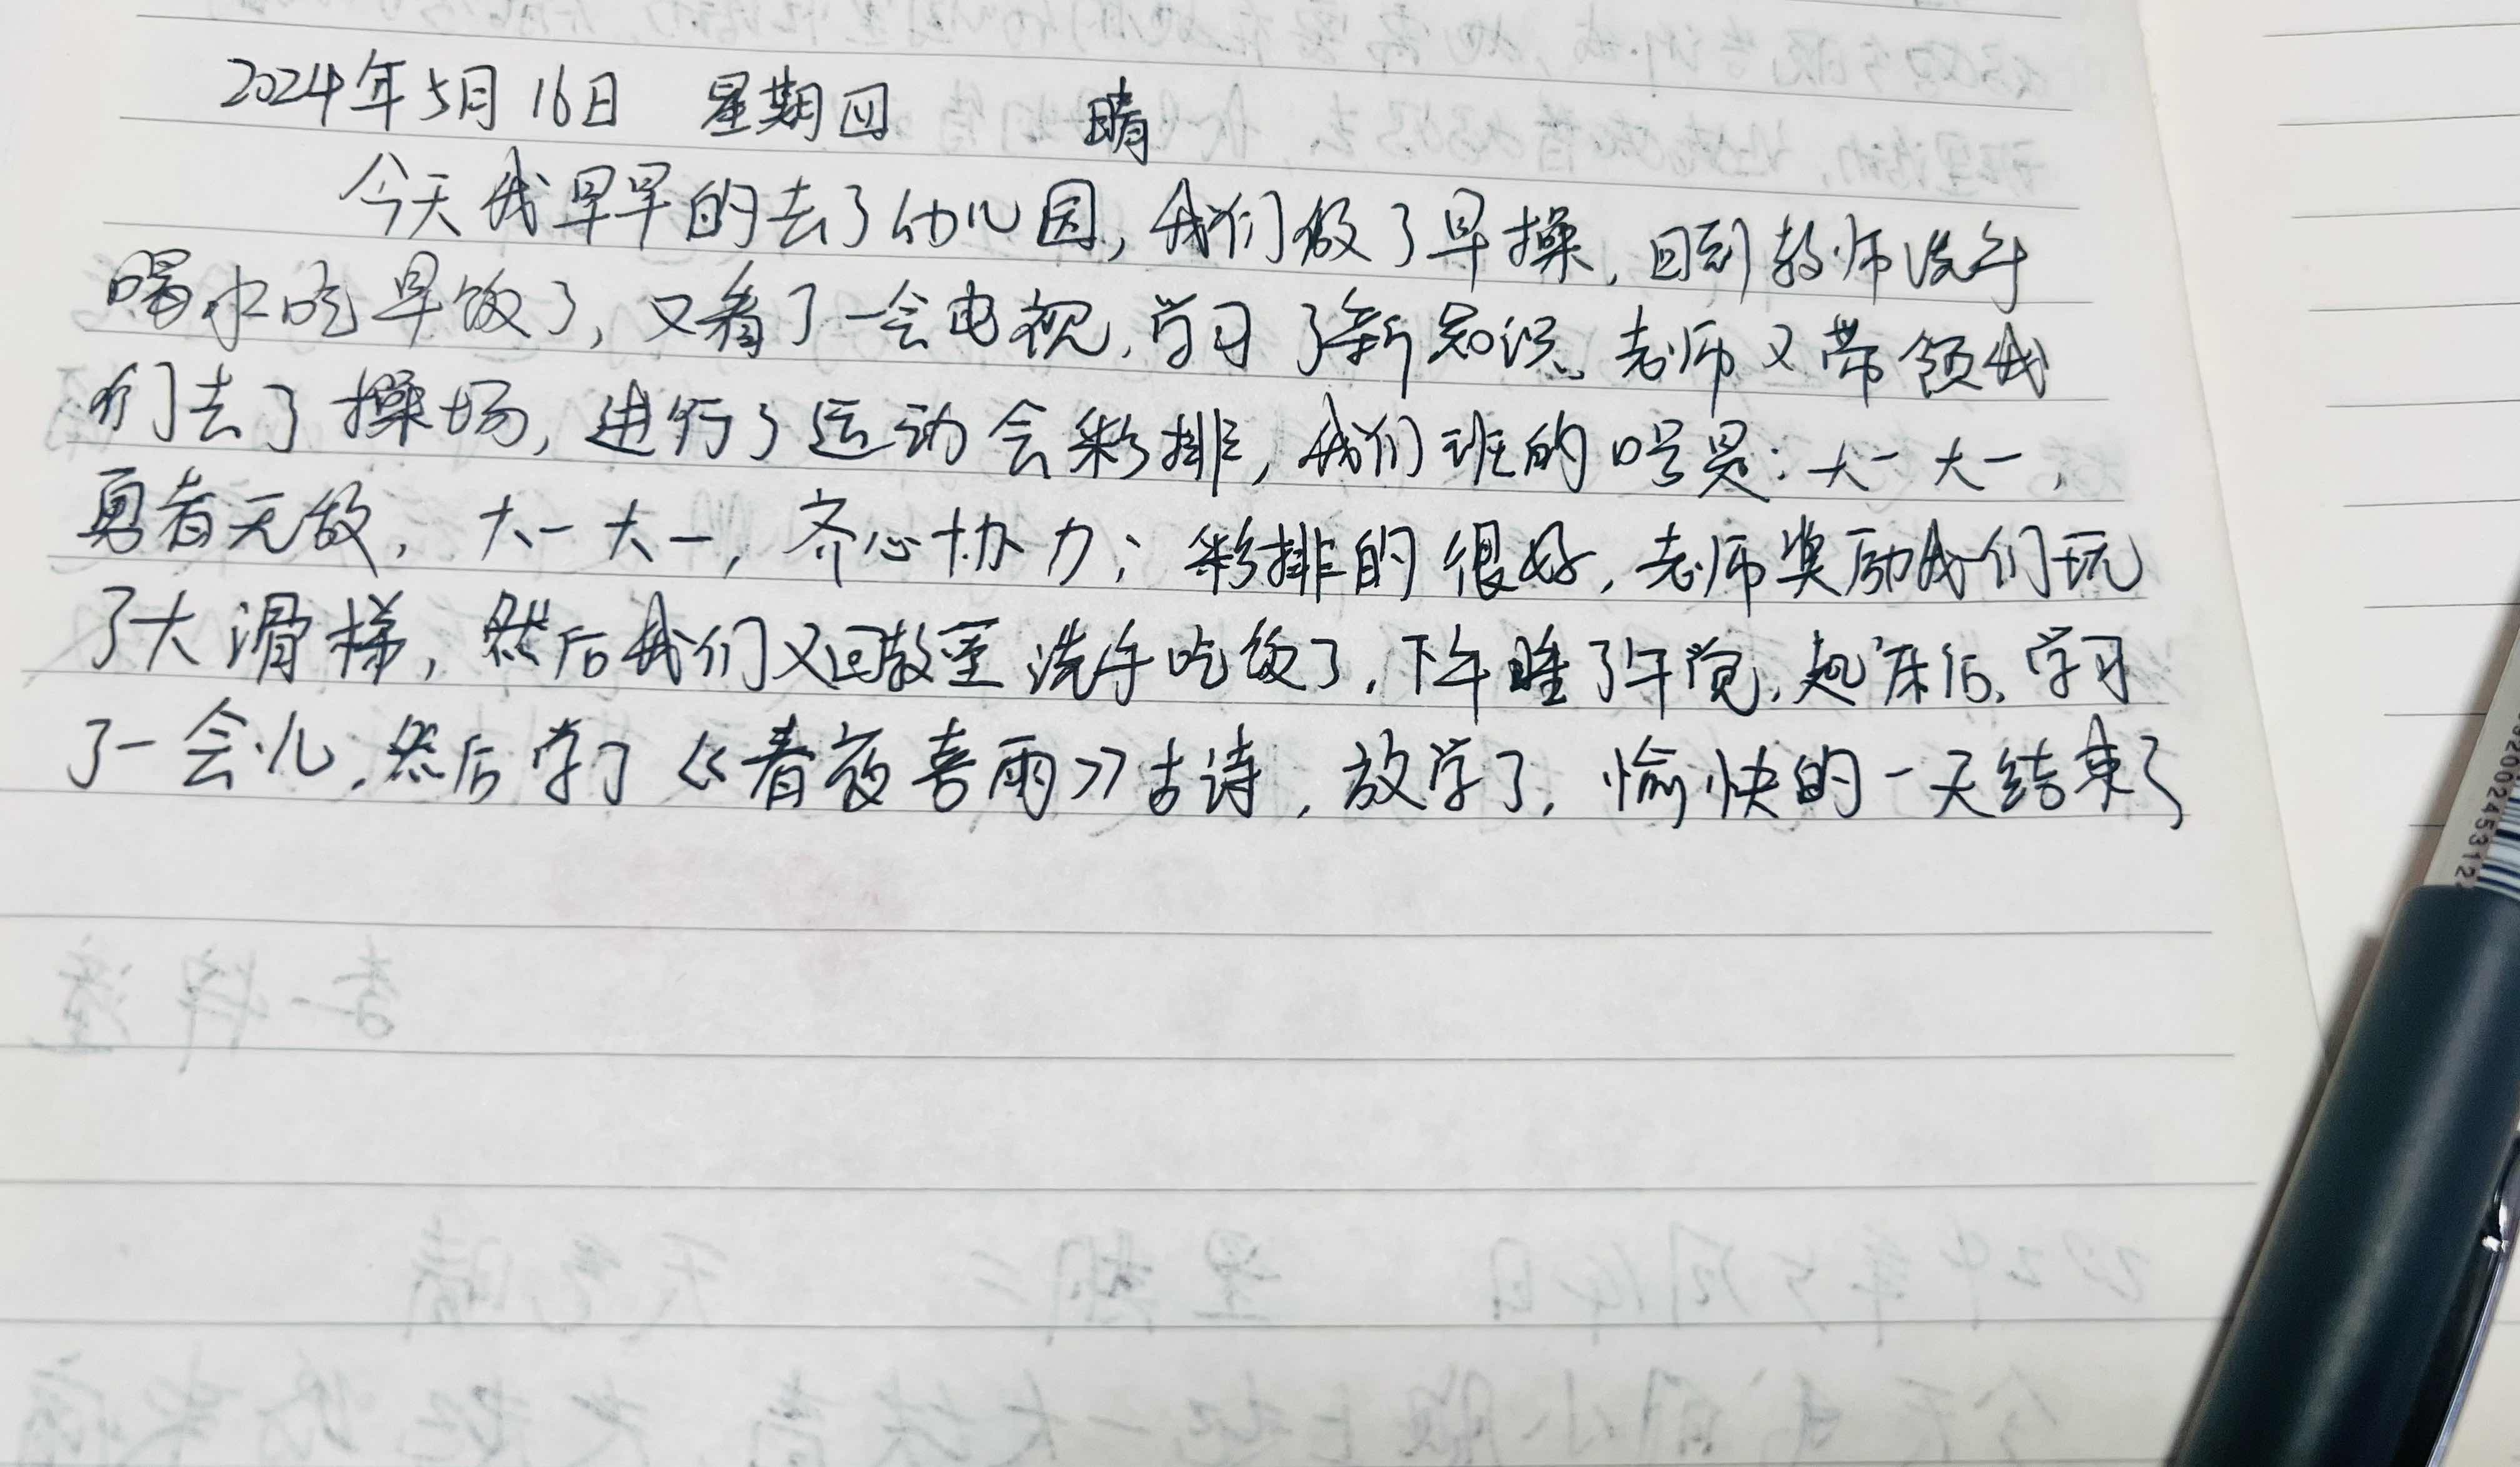 2024年5月16日 星期四 晴
今天我早早的去了幼儿园,我们做了早操,回到教师洗手
喝水吃早饭了,又看了一会电视,学习了新知识。老师又带领我
们去了操场,进行了运动会彩排,我们班的口号是:大一大一,
勇者无敌,大一大一,齐心协力;彩排的很好,老师奖励我们玩
了大滑梯,然后我们又回教室洗手吃饭了,下午睡了午觉,起床后,学习
了一会儿,然后学了《春夜喜雨》古诗,放学了,愉快的一天结束了